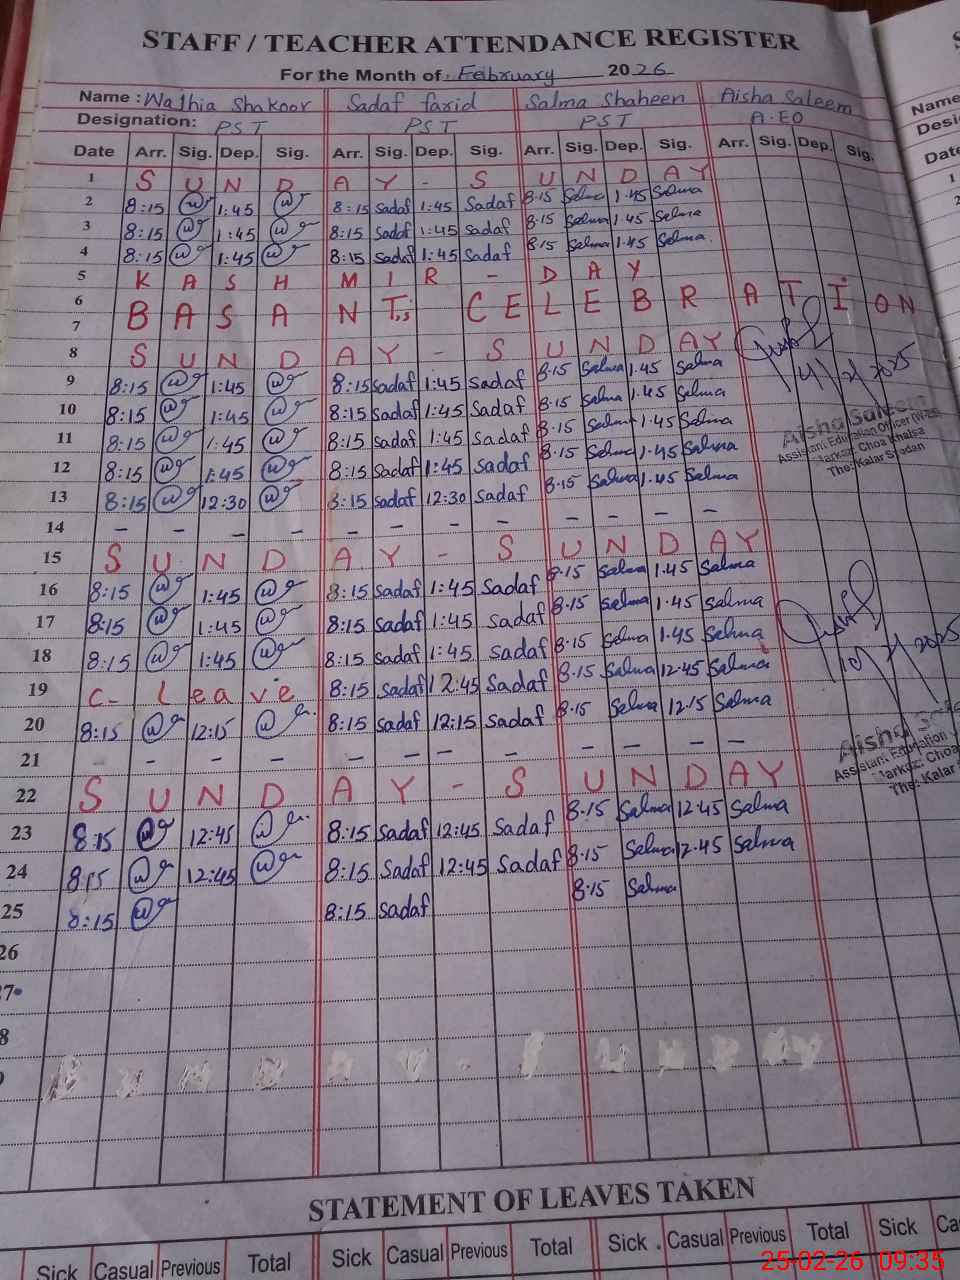 STAFF / TEACHER ATTENDANCE REGISTER
For the Month of February 2026
Name : Wajhia Shakoor Sadaf farid Salma Shaheen Aisha Saleem
Designation: PST PST PST A.EO
Date Arr. Sig. Dep. Sig. Arr. Sig. Dep. Sig. Arr. Sig. Dep. Sig. Arr. Sig. Dep. Sig.
1 S U N D A Y - S U N D A Y
2 8:15 1:45 8:15 Sadaf 1:45 Sadaf 8.15 Salma 1.45 Salma
3 8:15 1:45 8:15 Sadaf 1:45 Sadaf 8.15 Salma 1.45 Salma
4 8:15 1:45 8:15 Sadaf 1:45 Sadaf 8.15 Salma 1.45 Salma.
5 K A S H M I R - D A Y
6 B A S A N T,s C E L E B R A T I O N
7
8 S U N D A Y - S U N D A Y
9 8:15 1:45 8:15 Sadaf 1:45 Sadaf 8.15 Salma 1.45 Salma
10 8:15 1:45 8:15 Sadaf 1:45 Sadaf 8.15 Salma 1.45 Salma
11 8:15 1:45 8:15 Sadaf 1:45 Sadaf 8.15 Salma 1.45 Salma
12 8:15 1:45 8:15 Sadaf 1:45 Sadaf 8.15 Salma 1.45 Salma
13 8:15 12:30 8:15 Sadaf 12:30 Sadaf 8.15 Salma 1.45 Salma
14 - - - - - - - - - - - -
15 S U N D A Y - S U N D A Y
16 8:15 1:45 8:15 Sadaf 1:45 Sadaf 8.15 Salma 1.45 Salma
17 8:15 1:45 8:15 Sadaf 1:45 Sadaf 8.15 Salma 1.45 Salma
18 8:15 1:45 8:15 Sadaf 1:45 Sadaf 8.15 Salma 1.45 Salma
19 C- Leave 8:15 Sadaf 12:45 Sadaf 8.15 Salma 12.45 Salma
20 8:15 12:15 8:15 Sadaf 12:15 Sadaf 8.15 Salma 12.15 Salma
21 - - - - - - - - - - - -
22 S U N D A Y - S U N D A Y
23 8:15 12:45 8:15 Sadaf 12:45 Sadaf 8.15 Salma 12.45 Salma
24 8:15 12:45 8:15 Sadaf 12:45 Sadaf 8.15 Salma 12.45 Salma
25 8:15 8:15 Sadaf 8.15 Salma
26
Aisha Saleem
Assistant Education Officer
Markaz: Choa Khalsa
The: Kalar Syedan
Aisha
Assistant Education
Markaz: Choa
The: Kalar
STATEMENT OF LEAVES TAKEN
Sick Casual Previous Total Sick Casual Previous Total Sick . Casual Previous Total Sick
25-02-26 09:35